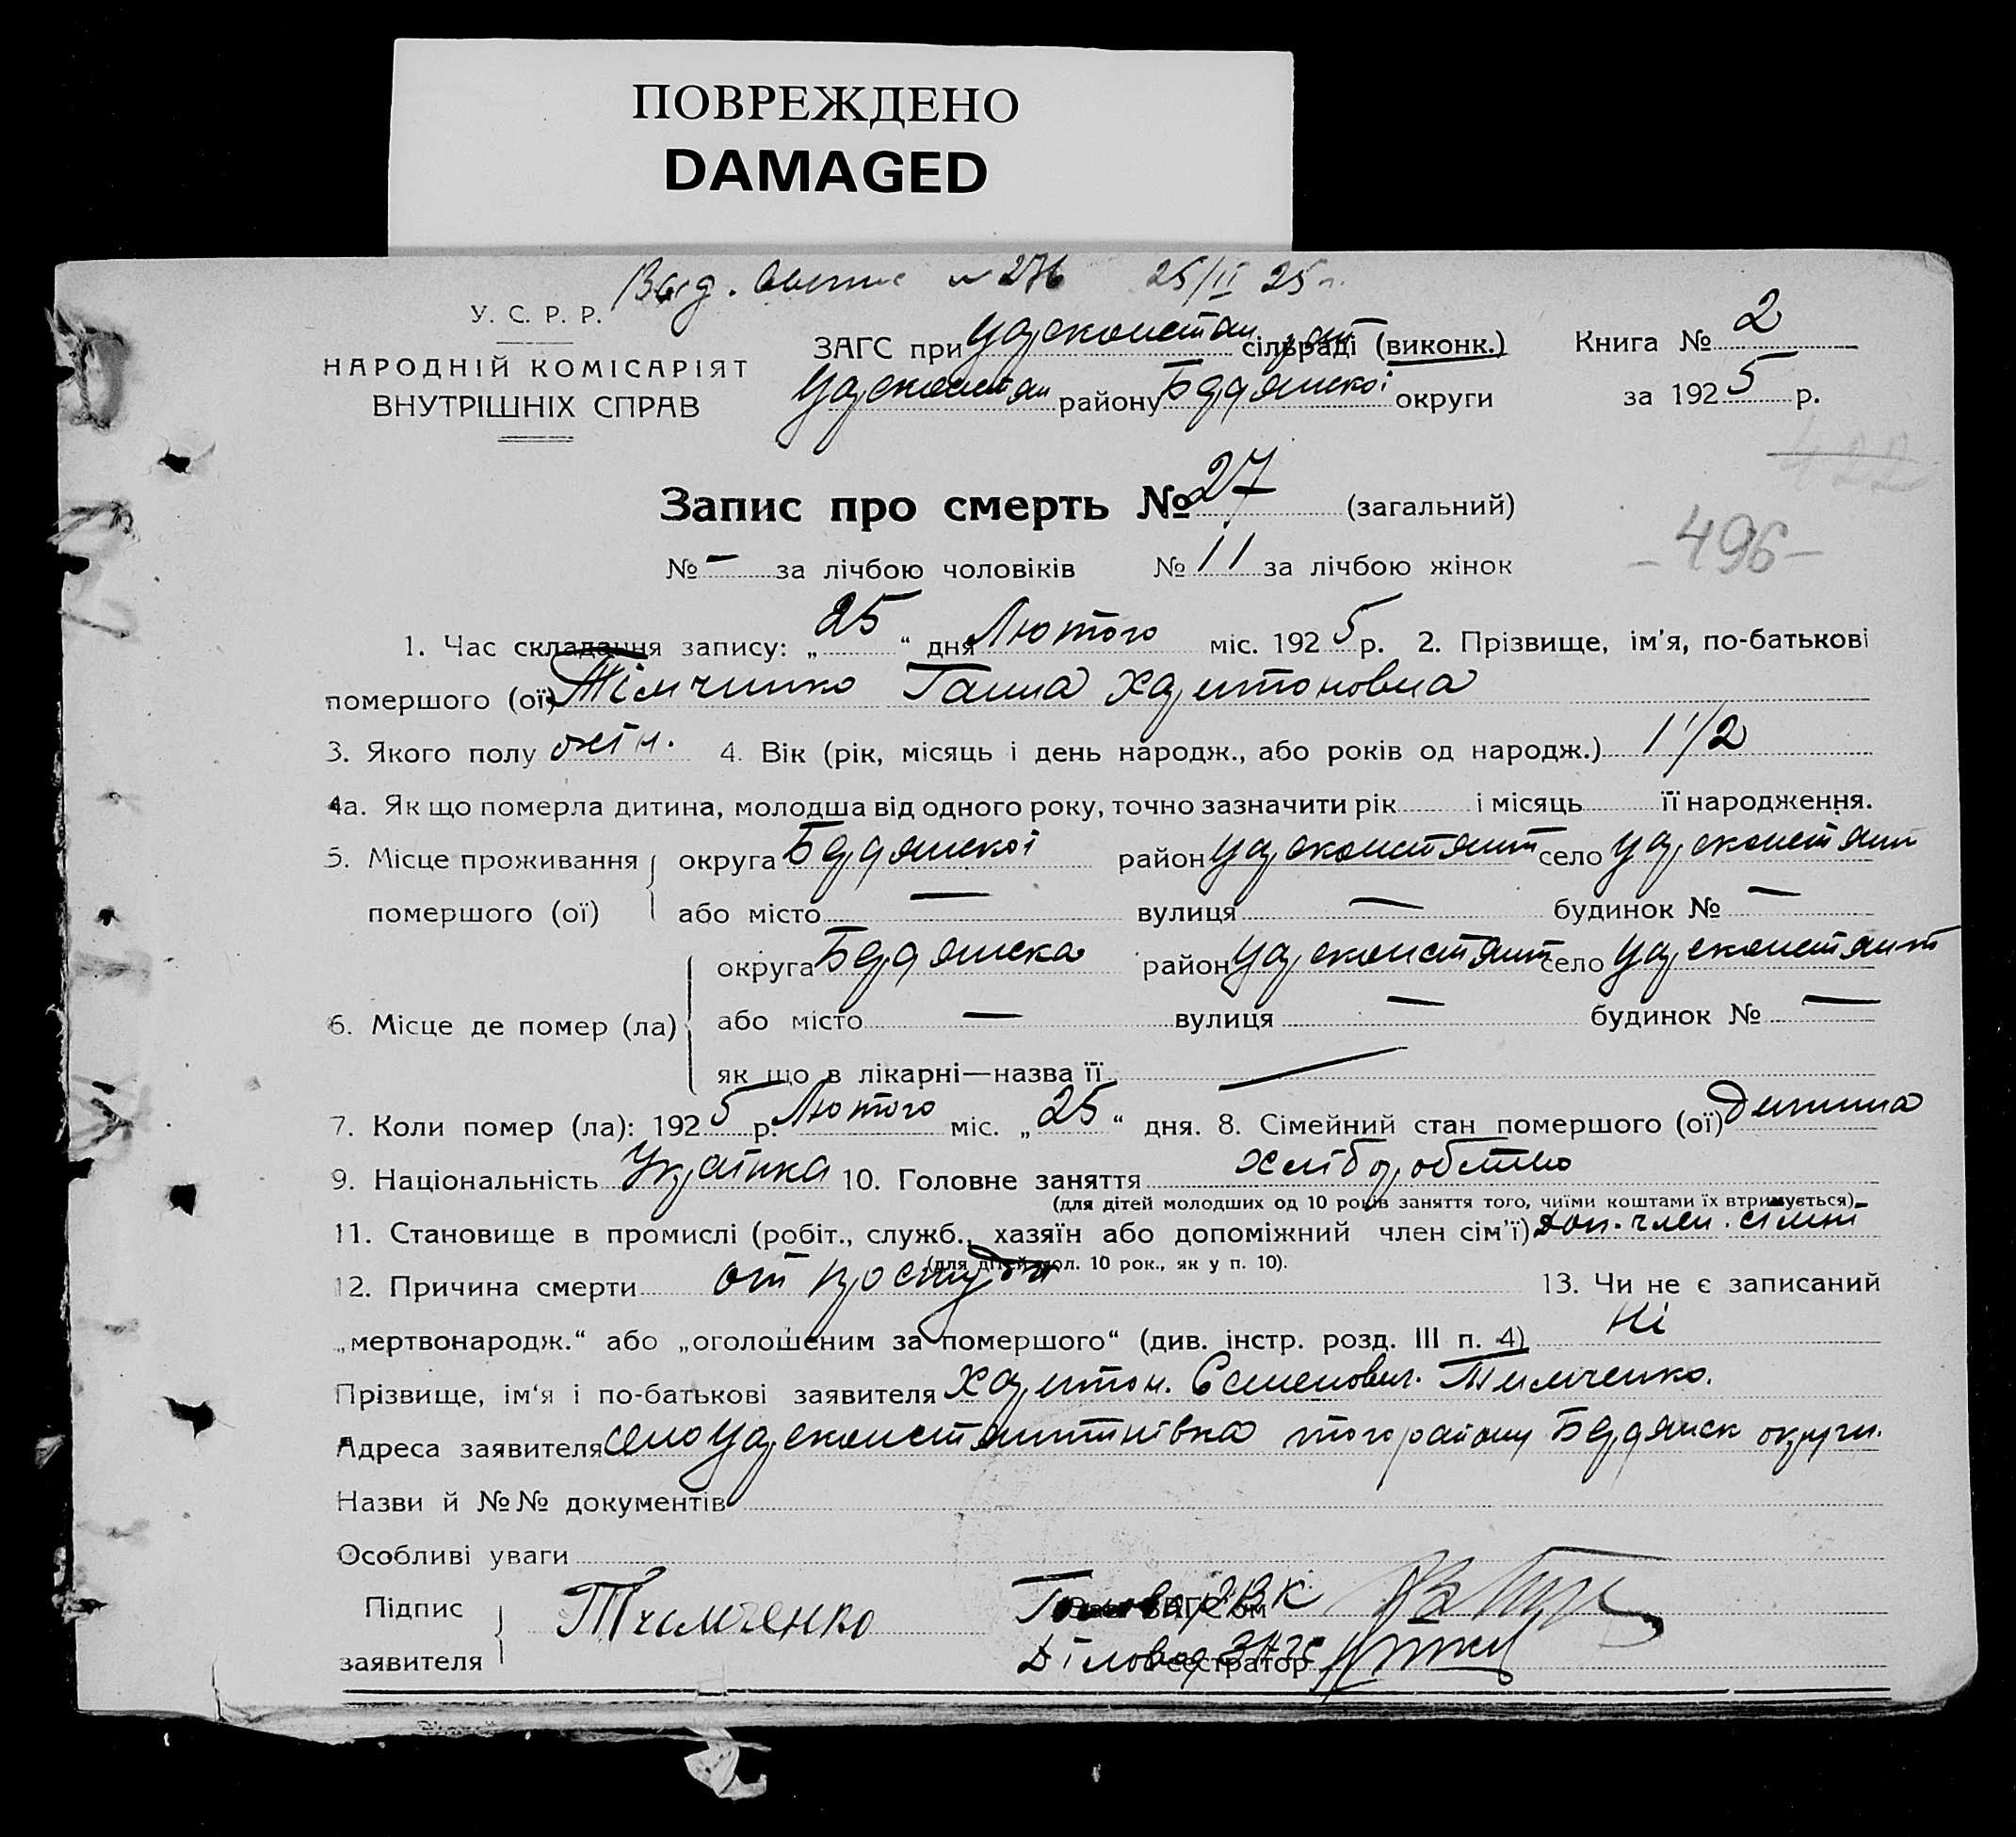 ПОВРЕЖДЕНО
DAMAGED
Выд. № 276 25/II 25 г.
У. С. Р. Р.
НАРОДНІЙ КОМІСАРІЯТ
ВНУТРІШНІХ СПРАВ
ЗАГС при Царєконстан сільраді (виконк.)
Царєконстан району Бердянскої округи
Книга № 2
за 1925 р.
422
Запис про смерть № 27 (загальний)
- 496 -
№ — за лічбою чоловіків № 11 за лічбою жінок
1. Час складання запису: „25“ дня Лютого міс. 1925 р. 2. Прізвище, ім'я, по-батькові
помершого (ої) Тімчинко Ганна Харитоновна
3. Якого полу жін. 4. Вік (рік, місяць і день народж., або років од народж.) 1 1/2
4а. Як що померла дитина, молодша від одного року, точно зазначити рік і місяць її народження.
5. Місце проживання округа Бердянскої район Царєконстянт село Царєконстянт
помершого (ої) або місто — вулиця — будинок № —
округа Бердянска район Царєконстянт село Царєконстянт
6. Місце де помер (ла) або місто — вулиця — будинок № —
як що в лікарні—назва її —
7. Коли помер (ла): 1925 р. Лютого міс. „25“ дня. 8. Сімейний стан помершого (ої) Дитина
9. Національність Українка 10. Головне заняття хліборобство
(для дітей молодших од 10 років заняття того, чиїми коштами їх втримується)
11. Становище в промислі (робіт., служб., хазяїн або допоміжний член сім'ї) доп. член. сімні
(для дітей мол. 10 рок., як у п. 10).
12. Причина смерти от простуди 13. Чи не є записаний
„мертвонародж.“ або „оголошеним за помершого“ (див. інстр. розд. III п. 4) Ні
Прізвище, ім'я і по-батькові заявителя Харитон. Семенович. Тимченко.
Адреса заявителя село Царєконстянтинівка того району Бердянск округи.
Назви й №№ документів
Особливі уваги
Підпис Голова РВК
заявителя Тимченко
Діловод ЗАГС Реєстратор